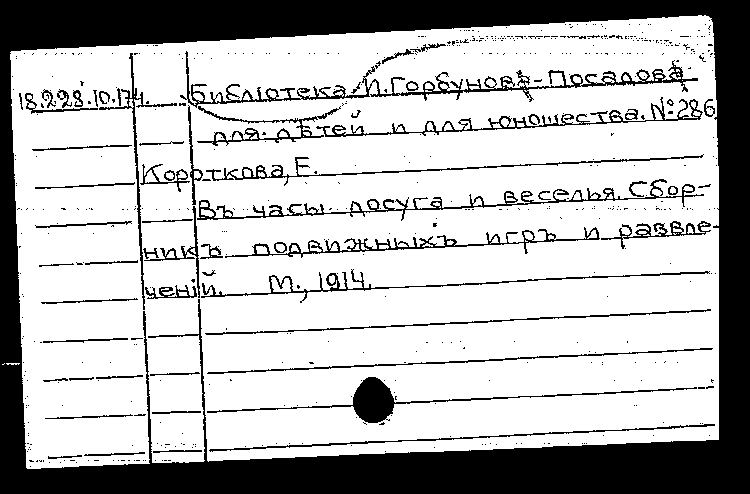 18.228.10.174. Библіотека И.Горбунова-Посадова
для дѣтей и для юношества. №286
Короткова, Е.
Въ часы досуга и веселья. Сбор-
никъ подвижныхъ игръ и развле-
ченій. М., 1914.